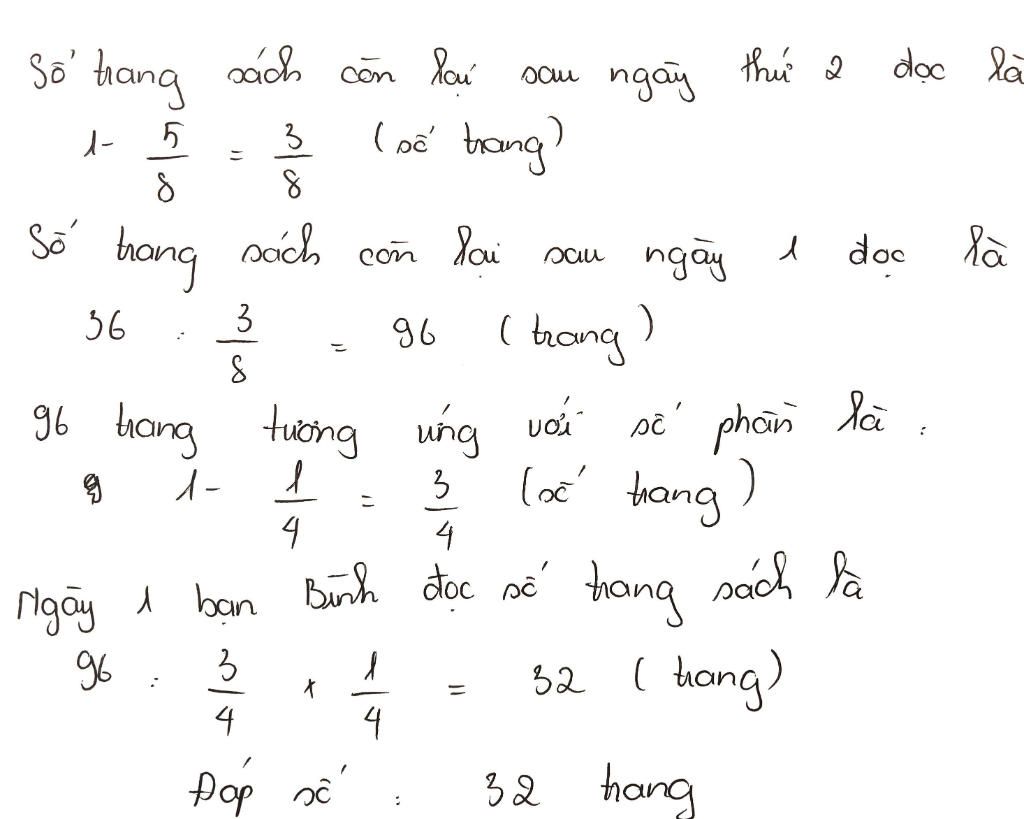 Số trang sách còn lại sau ngày thứ 2 đọc là
1 - 5/8 = 3/8 (số trang)
Số trang sách còn lại sau ngày 1 đọc là
36 : 3/8 = 96 (trang)
96 trang tương ứng với số phần là :
1 - 1/4 = 3/4 (số trang)
Ngày 1 bạn Bình đọc số trang sách là
96 : 3/4 x 1/4 = 32 (trang)
Đáp số : 32 trang